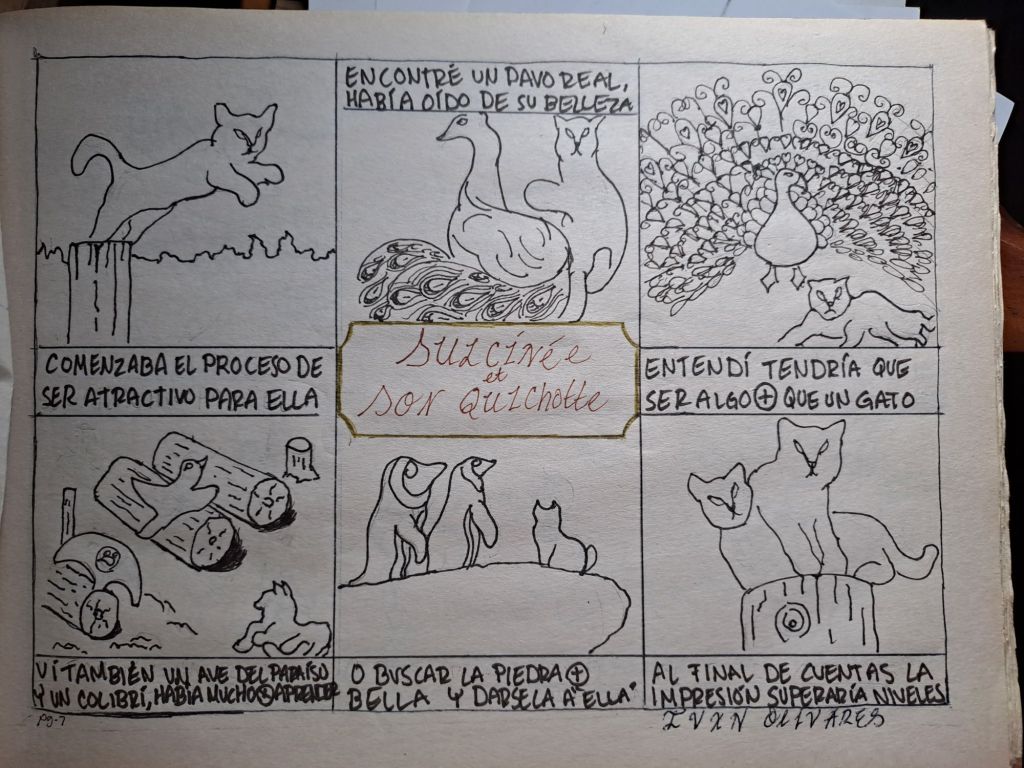 COMENZABA EL PROCESO DE
SER ATRACTIVO PARA ELLA
ENCONTRÉ UN PAVO REAL,
HABÍA OÍDO DE SU BELLEZA
SULCINÉE
et
SON QUICHOTTE
ENTENDÍ TENDRÍA QUE
SER ALGO ⊕ QUE UN GATO
VI TAMBIÉN UN AVE DEL PARAÍSO
Y UN COLIBRÍ, HABÍA MUCHO ⊕ APRENDER
O BUSCAR LA PIEDRA ⊕
BELLA Y DARSELA A "ELLA"
AL FINAL DE CUENTAS LA
IMPRESIÓN SUPERARÍA NIVELES
pg-7
IVXN OLIVARES